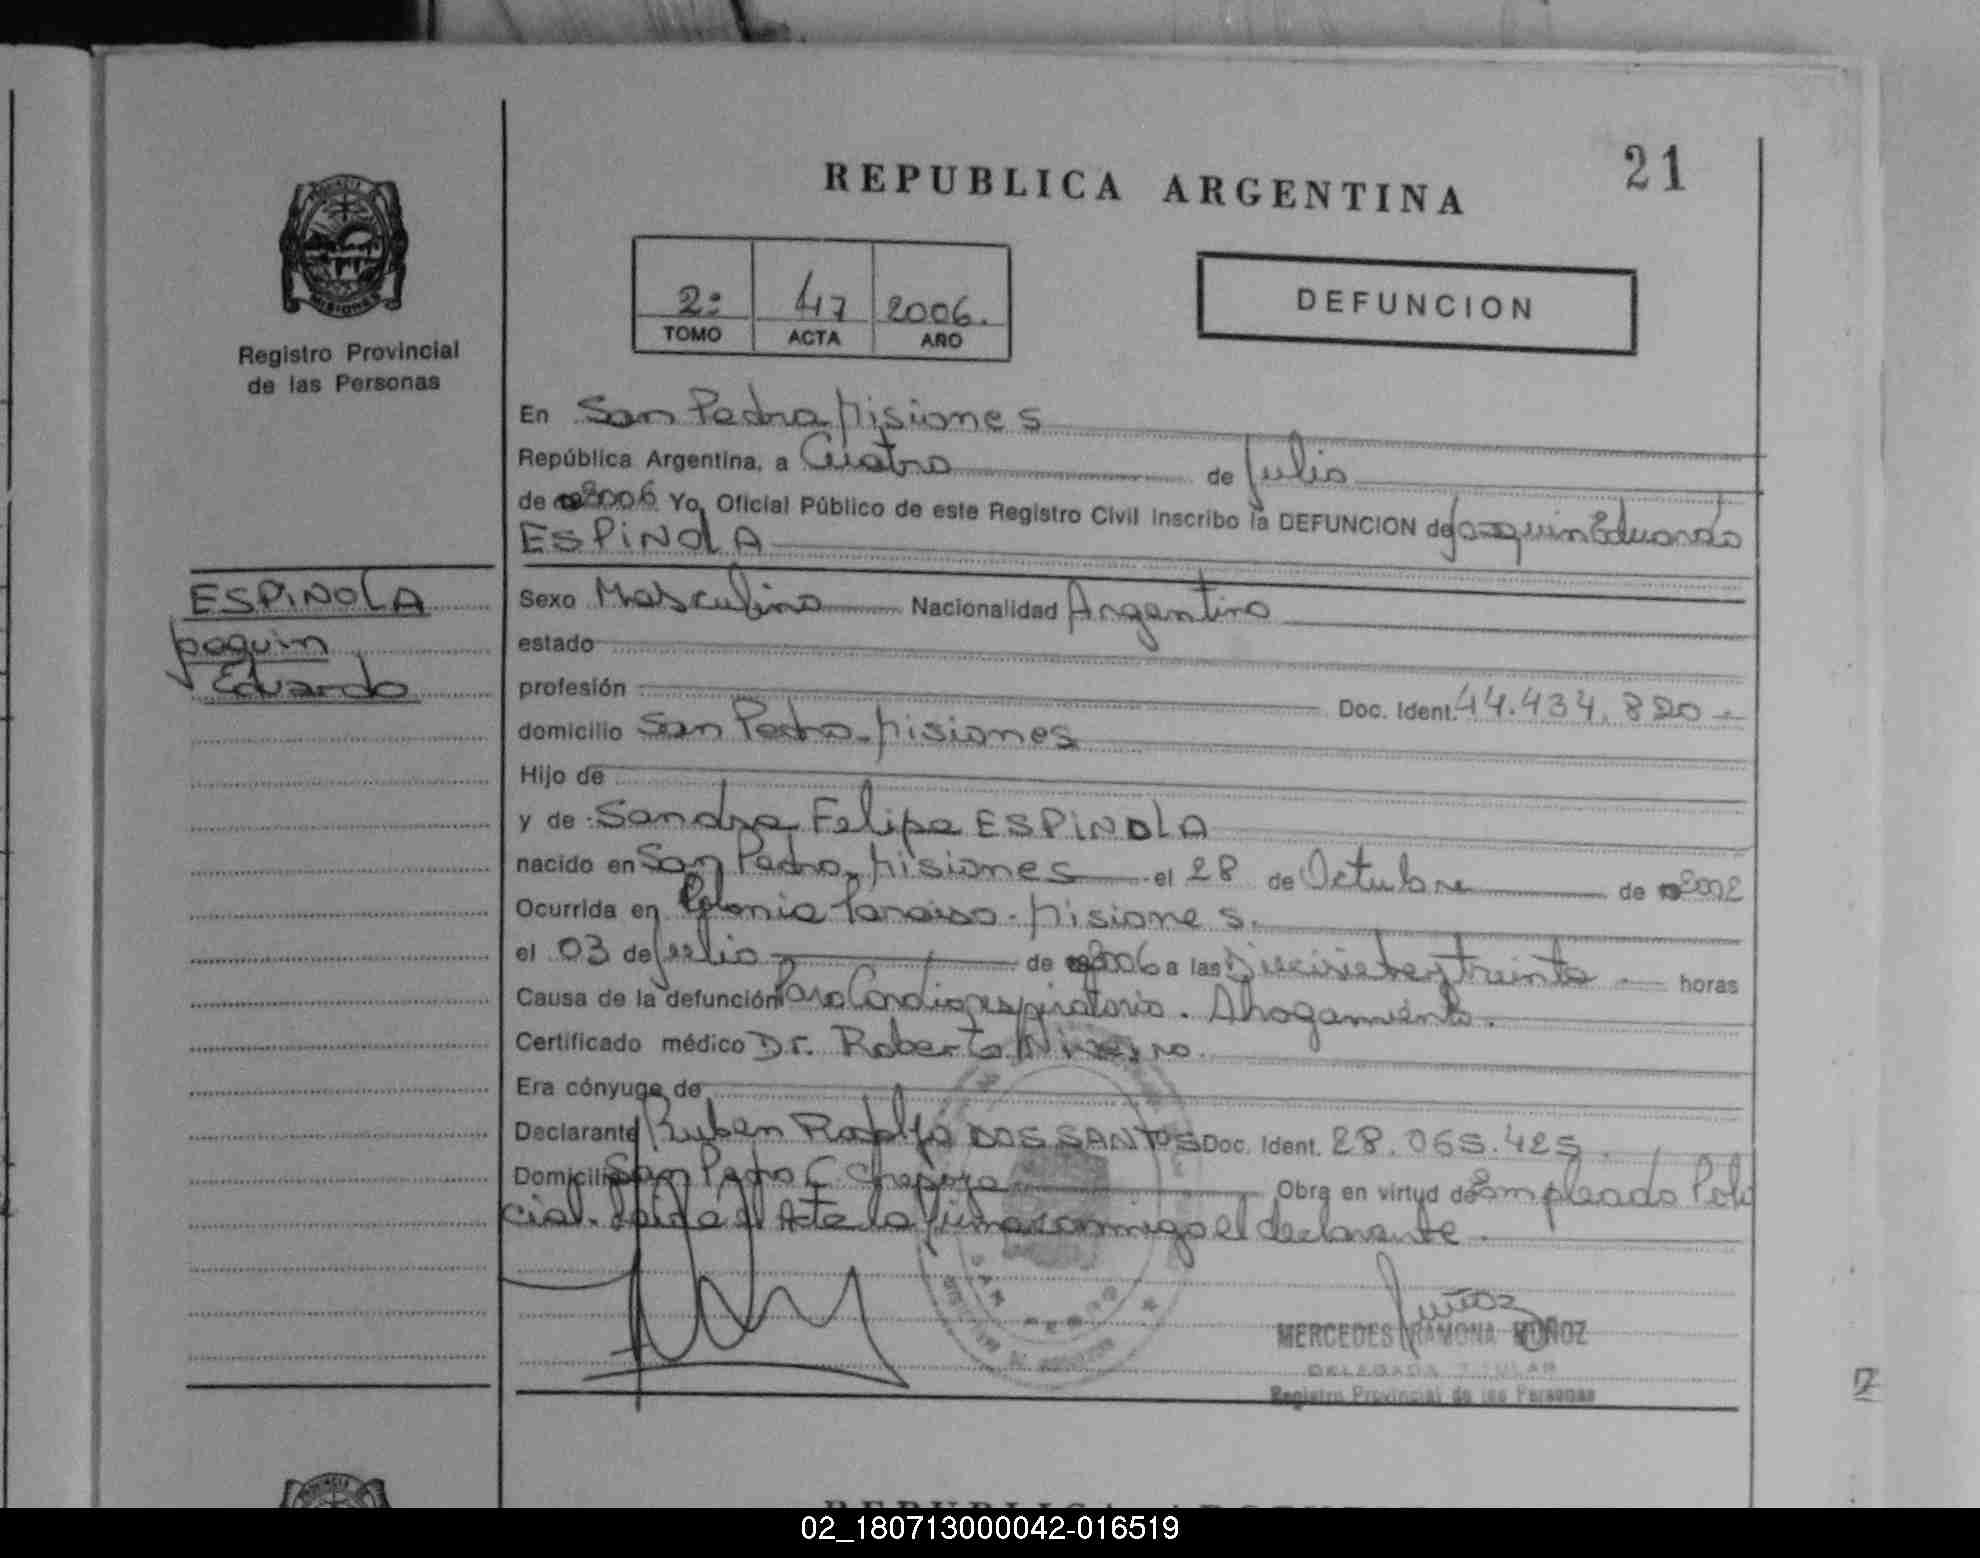 REPUBLICA ARGENTINA
21
PROVINCIA
MISIONES
Registro Provincial
de las Personas
2º 47 2006.
TOMO ACTA AÑO
DEFUNCION
En San Pedro Misiones
República Argentina, a Cuatro de Julio
de 2006 Yo, Oficial Público de este Registro Civil inscribo la DEFUNCION de Joaquin Eduardo
ESPINOLA
ESPINOLA
Joaquin
Eduardo
Sexo Masculino Nacionalidad Argentino
estado
profesión Doc. Ident. 44.434.820
domicilio San Pedro. Misiones
Hijo de
y de Sandra Felipa ESPINOLA
nacido en San Pedro. Misiones el 28 de Octubre de 2002
Ocurrida en Colonia Paraiso. Misiones.
el 03 de Julio de 2006 a las Diecisiete y treinta horas
Causa de la defunción Paro Cardiorespiratorio. Ahogamiento.
Certificado médico Dr. Roberto
Era cónyuge de
Declarante Ruben Rodolfo DOS SANTOS Doc. Ident. 28.065.425
Domicilio San Pedro C. Obra en virtud de Empleado Poli
cial. Acta la firma conmigo el declarante.
SAN PEDRO
Muñoz
MERCEDES RAMONA MUÑOZ
DELEGADA TITULAR
Registro Provincial de las Personas
02_180713000042-016519